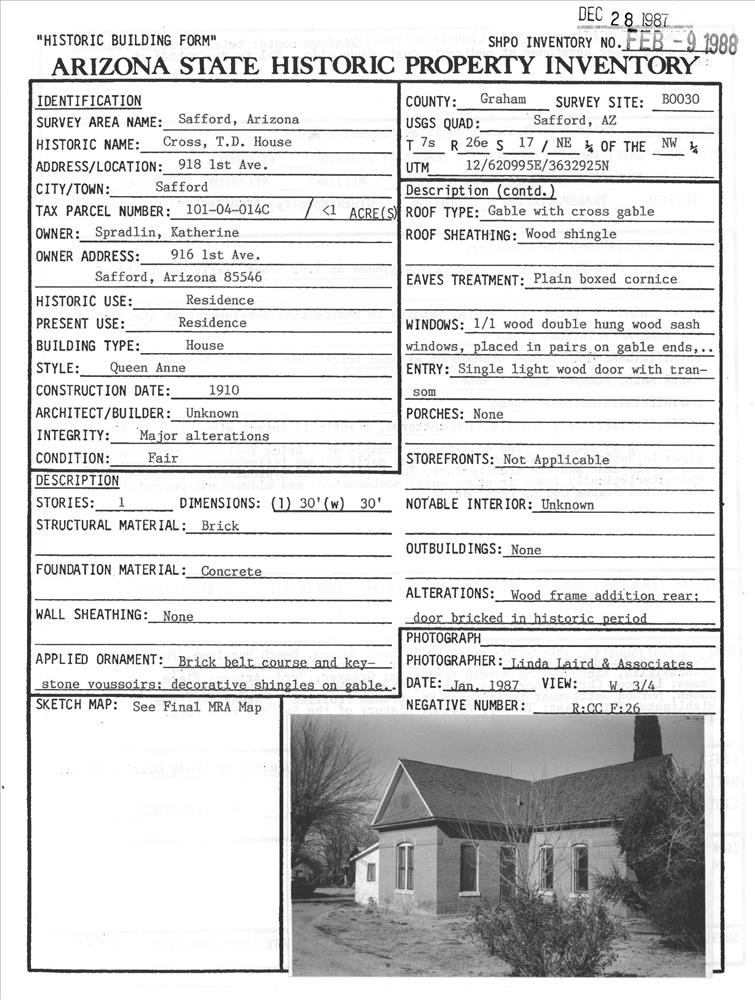 DEC 28 1987
"HISTORIC BUILDING FORM"
SHPO INVENTORY NO. FEB - 9 1988
ARIZONA STATE HISTORIC PROPERTY INVENTORY
IDENTIFICATION
SURVEY AREA NAME: Safford, Arizona
HISTORIC NAME: Cross, T.D. House
ADDRESS/LOCATION: 918 1st Ave.
CITY/TOWN: Safford
TAX PARCEL NUMBER: 101-04-014C / <1 ACRE(S)
OWNER: Spradlin, Katherine
OWNER ADDRESS: 916 1st Ave.
Safford, Arizona 85546
HISTORIC USE: Residence
PRESENT USE: Residence
BUILDING TYPE: House
STYLE: Queen Anne
CONSTRUCTION DATE: 1910
ARCHITECT/BUILDER: Unknown
INTEGRITY: Major alterations
CONDITION: Fair
DESCRIPTION
STORIES: 1 DIMENSIONS: (l) 30'(w) 30'
STRUCTURAL MATERIAL: Brick
FOUNDATION MATERIAL: Concrete
WALL SHEATHING: None
APPLIED ORNAMENT: Brick belt course and key-
stone voussoirs; decorative shingles on gable.
COUNTY: Graham SURVEY SITE: B0030
USGS QUAD: Safford, AZ
T 7s R 26e S 17 / NE ¼ OF THE NW ¼
UTM 12/620995E/3632925N
Description (contd.)
ROOF TYPE: Gable with cross gable
ROOF SHEATHING: Wood shingle
EAVES TREATMENT: Plain boxed cornice
WINDOWS: 1/1 wood double hung wood sash
windows, placed in pairs on gable ends,..
ENTRY: Single light wood door with tran-
som
PORCHES: None
STOREFRONTS: Not Applicable
NOTABLE INTERIOR: Unknown
OUTBUILDINGS: None
ALTERATIONS: Wood frame addition rear;
door bricked in historic period
PHOTOGRAPH
PHOTOGRAPHER: Linda Laird & Associates
DATE: Jan. 1987 VIEW: W, 3/4
NEGATIVE NUMBER: R:CC F:26
SKETCH MAP: See Final MRA Map